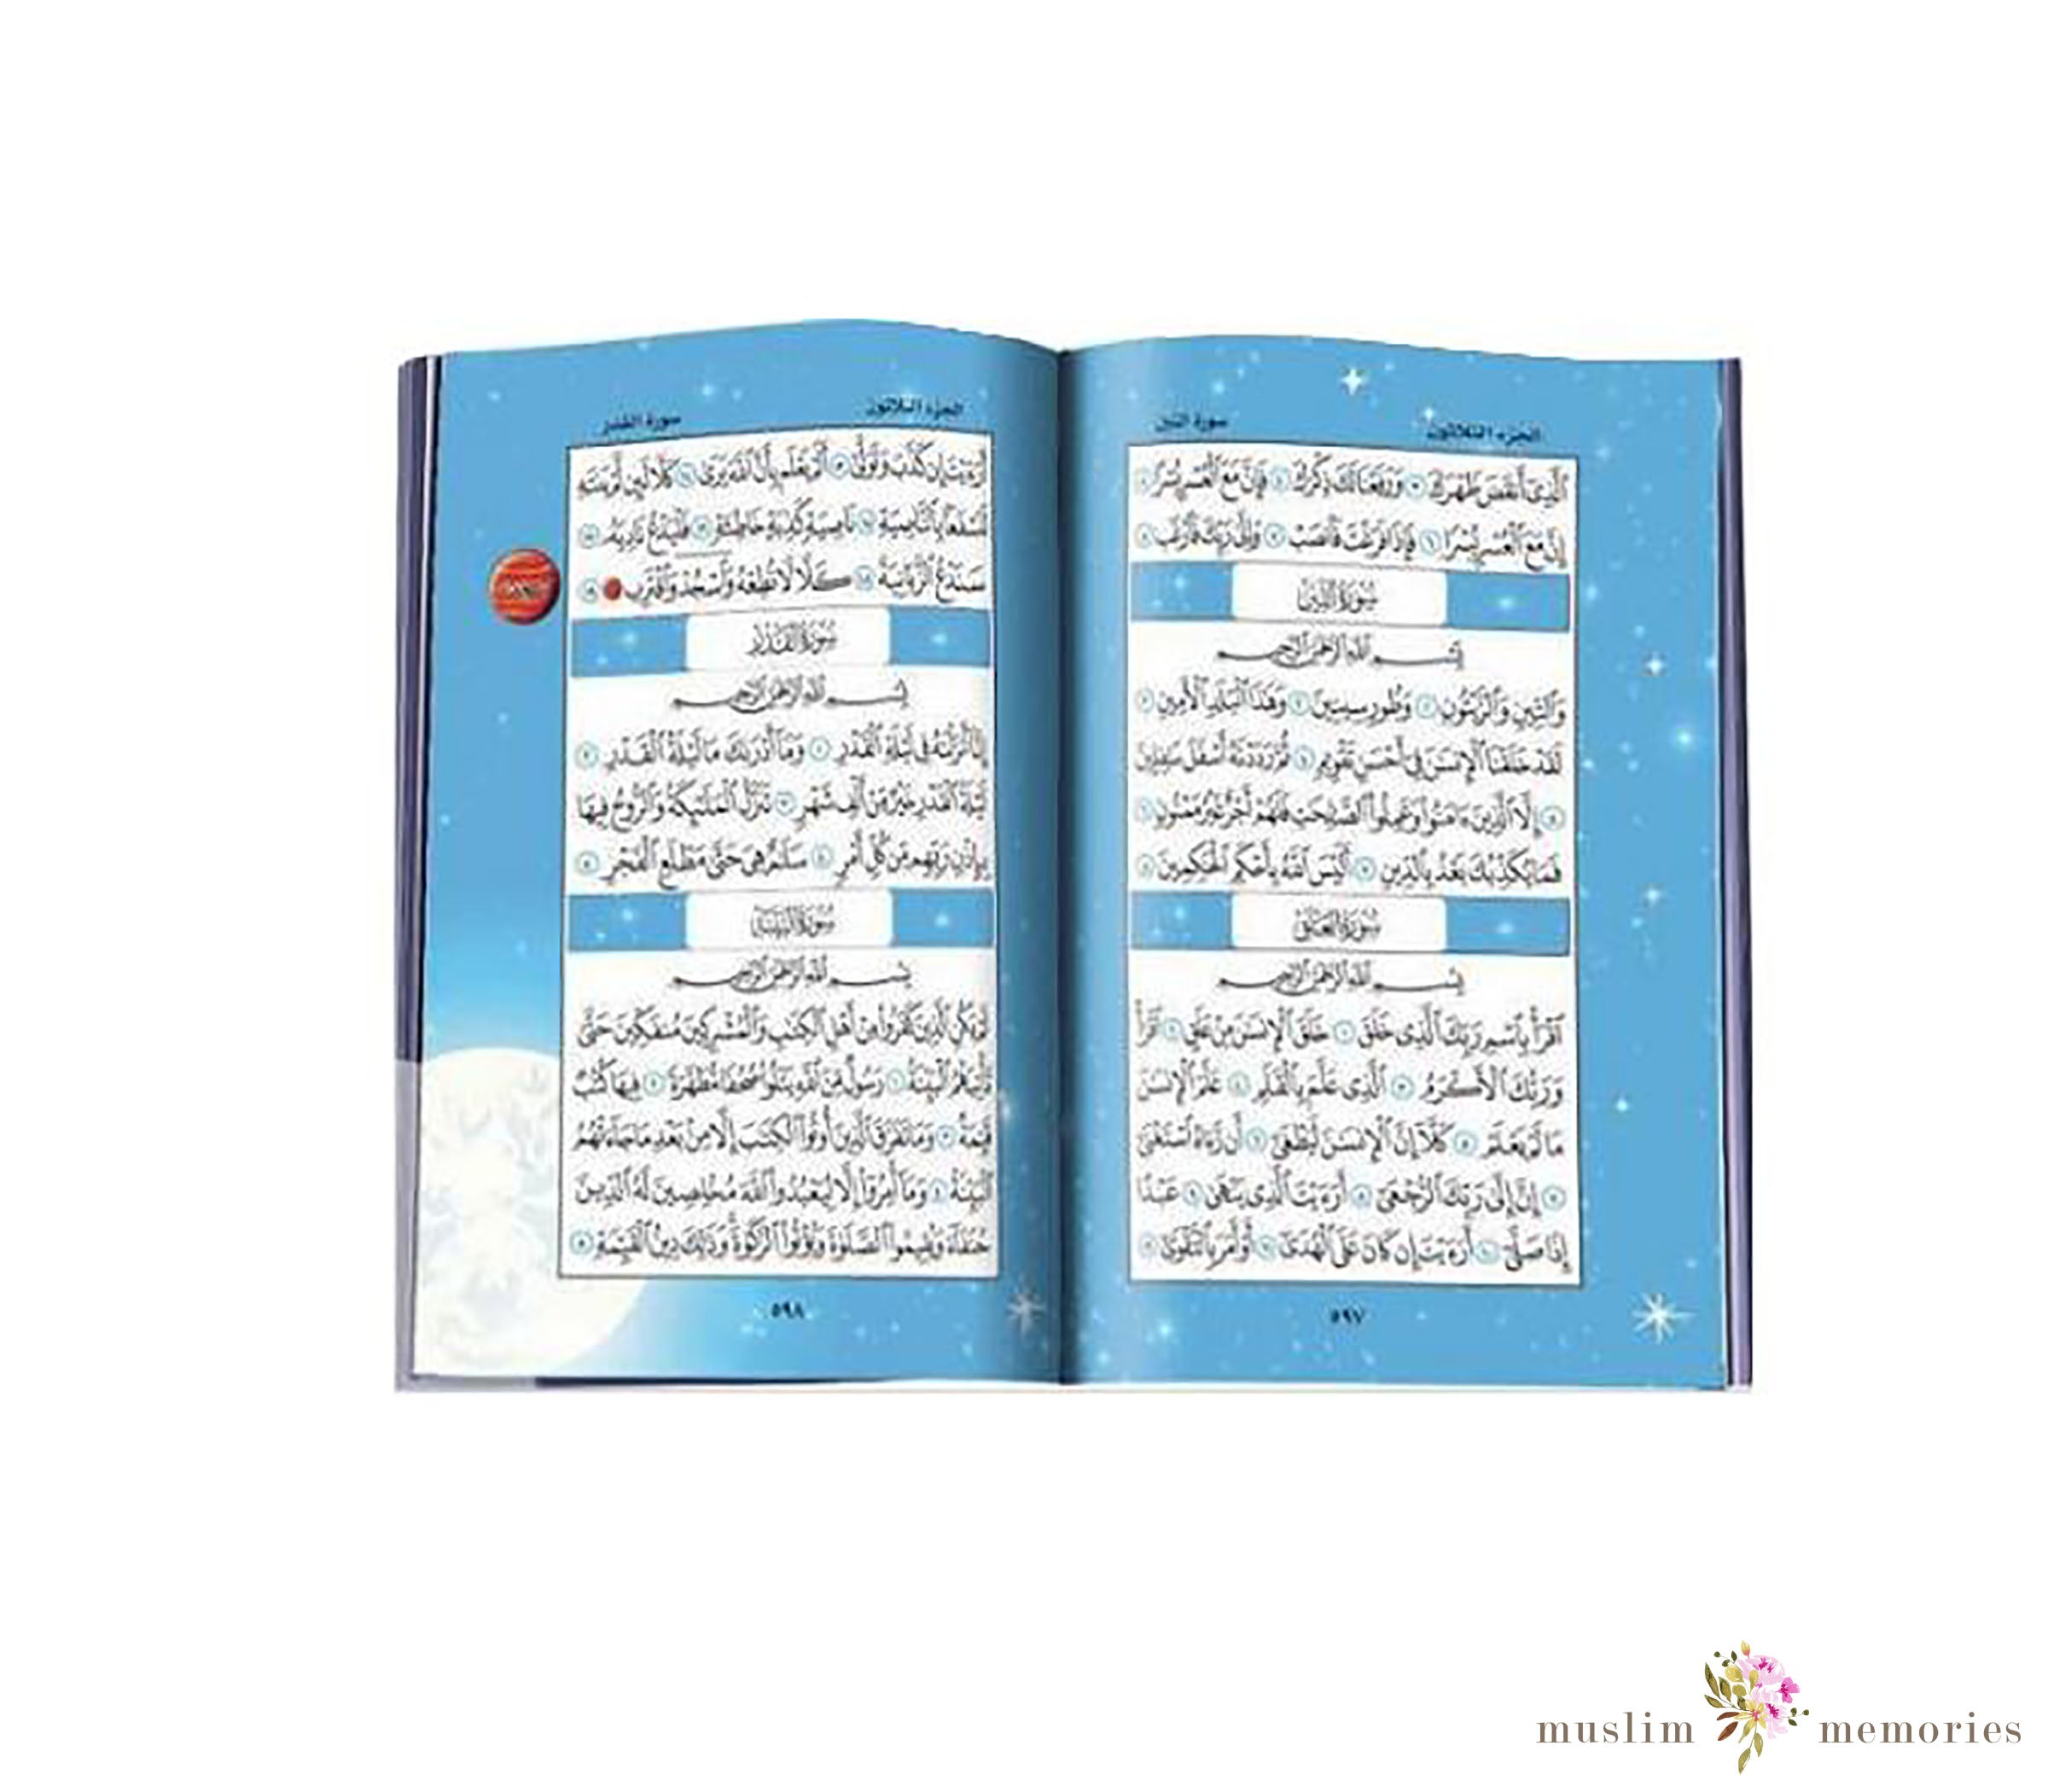 الجزء الثلاثون
سورة التين
ٱلَّذِىٓ أَنقَضَ ظَهْرَكَ ٣ وَرَفَعْنَا لَكَ ذِكْرَكَ ٤ فَإِنَّ مَعَ ٱلْعُسْرِ يُسْرًا ٥
إِنَّ مَعَ ٱلْعُسْرِ يُسْرًا ٦ فَإِذَا فَرَغْتَ فَٱنصَبْ ٧ وَإِلَىٰ رَبِّكَ فَٱرْغَب ٨
سُورَةُ التِّينِ
بِسْمِ ٱللَّهِ ٱلرَّحْمَٰنِ ٱلرَّحِيمِ
وَٱلتِّينِ وَٱلزَّيْتُونِ ١ وَطُورِ سِينِينَ ٢ وَهَٰذَا ٱلْبَلَدِ ٱلْأَمِينِ ٣
لَقَدْ خَلَقْنَا ٱلْإِنسَٰنَ فِىٓ أَحْسَنِ تَقْوِيمٍ ٤ ثُمَّ رَدَدْنَٰهُ أَسْفَلَ سَٰفِلِينَ
٥ إِلَّا ٱلَّذِينَ ءَامَنُوا۟ وَعَمِلُوا۟ ٱلصَّٰلِحَٰتِ فَلَهُمْ أَجْرٌ غَيْرُ مَمْنُونٍ ٦
فَمَا يُكَذِّبُكَ بَعْدُ بِٱلدِّينِ ٧ أَلَيْسَ ٱللَّهُ بِأَحْكَمِ ٱلْحَٰكِمِينَ ٨
سُورَةُ العَلَقِ
بِسْمِ ٱللَّهِ ٱلرَّحْمَٰنِ ٱلرَّحِيمِ
ٱقْرَأْ بِٱسْمِ رَبِّكَ ٱلَّذِى خَلَقَ ١ خَلَقَ ٱلْإِنسَٰنَ مِنْ عَلَقٍ ٢ ٱقْرَأْ
وَرَبُّكَ ٱلْأَكْرَمُ ٣ ٱلَّذِى عَلَّمَ بِٱلْقَلَمِ ٤ عَلَّمَ ٱلْإِنسَٰنَ
مَا لَمْ يَعْلَمْ ٥ كَلَّآ إِنَّ ٱلْإِنسَٰنَ لَيَطْغَىٰٓ ٦ أَن رَّءَاهُ ٱسْتَغْنَىٰٓ
٧ إِنَّ إِلَىٰ رَبِّكَ ٱلرُّجْعَىٰٓ ٨ أَرَءَيْتَ ٱلَّذِى يَنْهَىٰ ٩ عَبْدًا
إِذَا صَلَّىٰٓ ١٠ أَرَءَيْتَ إِن كَانَ عَلَى ٱلْهُدَىٰٓ ١١ أَوْ أَمَرَ بِٱلتَّقْوَىٰٓ ١٢
٥٩٧
الجزء الثلاثون
سورة القدر
أَرَءَيْتَ إِن كَذَّبَ وَتَوَلَّىٰٓ ١٣ أَلَمْ يَعْلَم بِأَنَّ ٱللَّهَ يَرَىٰ ١٤ كَلَّا لَئِن لَّمْ يَنتَهِ
لَنَسْفَعًۢا بِٱلنَّاصِيَةِ ١٥ نَاصِيَةٍ كَٰذِبَةٍ خَاطِئَةٍ ١٦ فَلْيَدْعُ نَادِيَهُۥ ١٧
سَنَدْعُ ٱلزَّبَانِيَةَ ١٨ كَلَّا لَا تُطِعْهُ وَٱسْجُدْ وَٱقْتَرِب ١٩
سُورَةُ القَدْرِ
بِسْمِ ٱللَّهِ ٱلرَّحْمَٰنِ ٱلرَّحِيمِ
إِنَّآ أَنزَلْنَٰهُ فِى لَيْلَةِ ٱلْقَدْرِ ١ وَمَآ أَدْرَىٰكَ مَا لَيْلَةُ ٱلْقَدْرِ ٢
لَيْلَةُ ٱلْقَدْرِ خَيْرٌ مِّنْ أَلْفِ شَهْرٍ ٣ تَنَزَّلُ ٱلْمَلَٰٓئِكَةُ وَٱلرُّوحُ فِيهَا
بِإِذْنِ رَبِّهِم مِّن كُلِّ أَمْرٍ ٤ سَلَٰمٌ هِىَ حَتَّىٰ مَطْلَعِ ٱلْفَجْرِ ٥
سُورَةُ البَيِّنَةِ
بِسْمِ ٱللَّهِ ٱلرَّحْمَٰنِ ٱلرَّحِيمِ
لَمْ يَكُنِ ٱلَّذِينَ كَفَرُوا۟ مِنْ أَهْلِ ٱلْكِتَٰبِ وَٱلْمُشْرِكِينَ مُنفَكِّينَ حَتَّىٰ
تَأْتِيَهُمُ ٱلْبَيِّنَةُ ١ رَسُولٌ مِّنَ ٱللَّهِ يَتْلُوا۟ صُحُفًا مُّطَهَّرَةً ٢ فِيهَا كُتُبٌ
قَيِّمَةٌ ٣ وَمَا تَفَرَّقَ ٱلَّذِينَ أُوتُوا۟ ٱلْكِتَٰبَ إِلَّا مِنۢ بَعْدِ مَا جَآءَتْهُمُ
ٱلْبَيِّنَةُ ٤ وَمَآ أُمِرُوٓا۟ إِلَّا لِيَعْبُدُوا۟ ٱللَّهَ مُخْلِصِينَ لَهُ ٱلدِّينَ
حُنَفَآءَ وَيُقِيمُوا۟ ٱلصَّلَوٰةَ وَيُؤْتُوا۟ ٱلزَّكَوٰةَ وَذَٰلِكَ دِينُ ٱلْقَيِّمَةِ ٥
٥٩٨
muslim memories